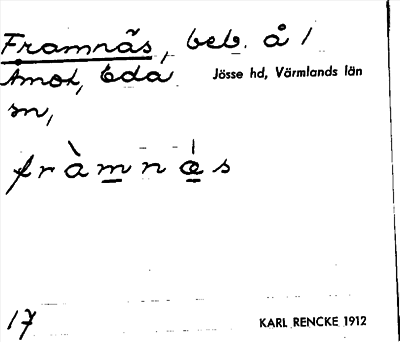 Framnäs, beb. å 1
Åmot, Eda Jösse hd, Värmlands län
sn,
fràmnæ̀s
17
KARL RENCKE 1912